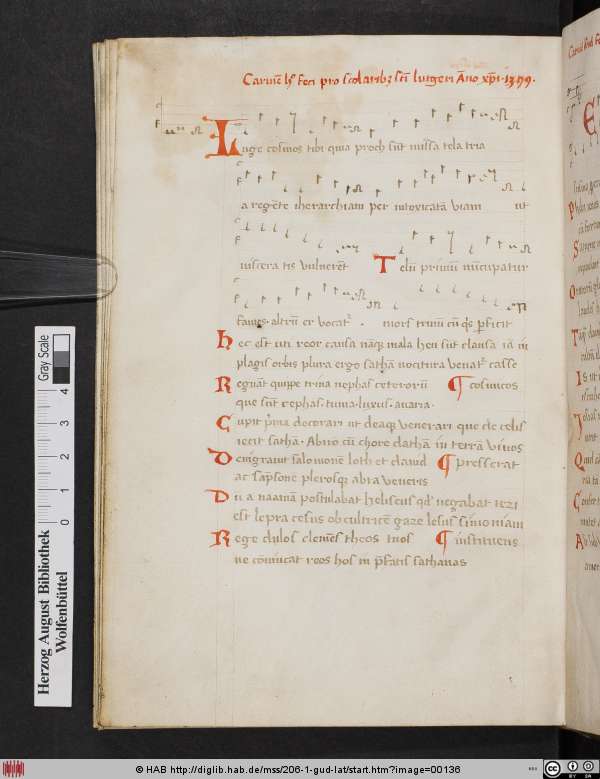 Carmē hͦ feci pro scolaribꝫ scī lutgeri Āno xp̄i · 1399 ·
Luge cosmos tibi quia proch sūt missa tela tria
a regēte iherarchiam per intoxicatā viam ut
viscera tis vulnerēt Telū primū nūcupatur
fames · altrū er vocatᷣ . mors trinū cū qs p̄ficit
Hec est uti reor causa nāqꝫ mala heu sūt clausa iā in
plagis orbis plura ergo sathān nocitura venatᷣ casse
Regnāt quippe trina nephas ceterorū ¶ cosmicos
que sūt cephas · tuma · luxus · auaria ·
Cupit p̄ma decorari ut deaqꝫ venerari que de celis
iecit sathā · Abirō cū chore dathā in terrā viuos
Denigrauit salomonē loth et dauid ¶ presserat
ac sāpsonē plerosqꝫ abra veneris
Du a naamā postulabat heliseus qd̄ negabat iezi
est lepra cesus ob cultricē gaze lesus simoniam
Rege chilos clemēs theos tuos ¶ instituens
ne cōuincat reos hos in p̄fatis sathanas
Herzog August Bibliothek
Wolfenbüttel
0 1 2 3 4
Gray Scale
© HAB http://diglib.hab.de/mss/206-1-gud-lat/start.htm?image=00136
HAB
cc BY SA